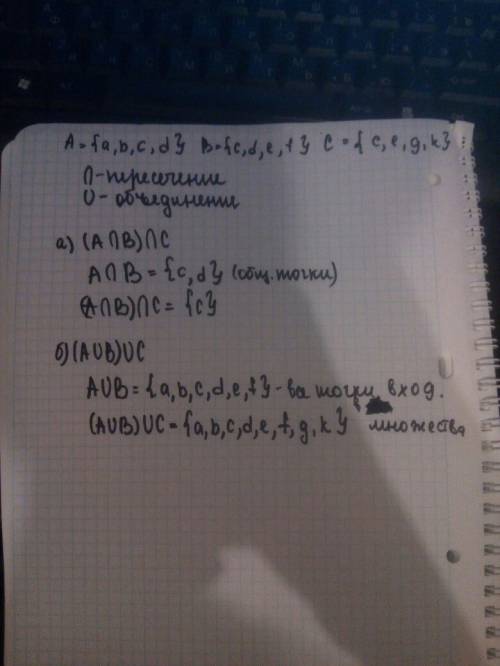 A = {a,b,c,d} B = {c,d,e,f} C = {c,e,g,k}
∩ - пересечение
∪ - объединение
а) (A∩B)∩C
A∩B = {c,d} (общ. точки)
(A∩B)∩C = {c}
б) (A∪B)∪C
A∪B = {a,b,c,d,e,f} - все точки вход.
(A∪B)∪C = {a,b,c,d,e,f,g,k} в множества